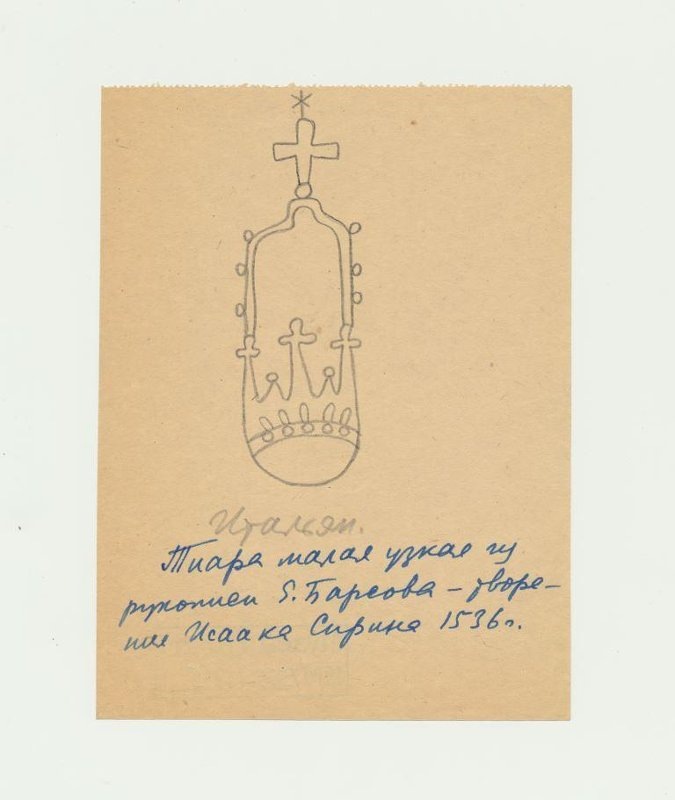 Итальян.
Тиара малая узкая из
рукописи Е. Барсова – творе–
ние Исаака Сирина 1536 г.